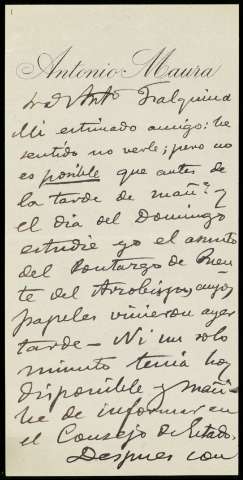 Antonio Maura
Sr. D. Antº
Mi estimado amigo: he
sentido no verle; pero no
es posible que antes de
la tarde de mañª y
el dia del Domingo
estudie yo el asunto
del Pontazgo de Puen-
te del Arzobispo, cuyos
papeles vinieron ayer
tarde — Ni un solo
minuto tenia hoy
disponible y mañª
he de informar en
el Consejo de Estado.
Despues con